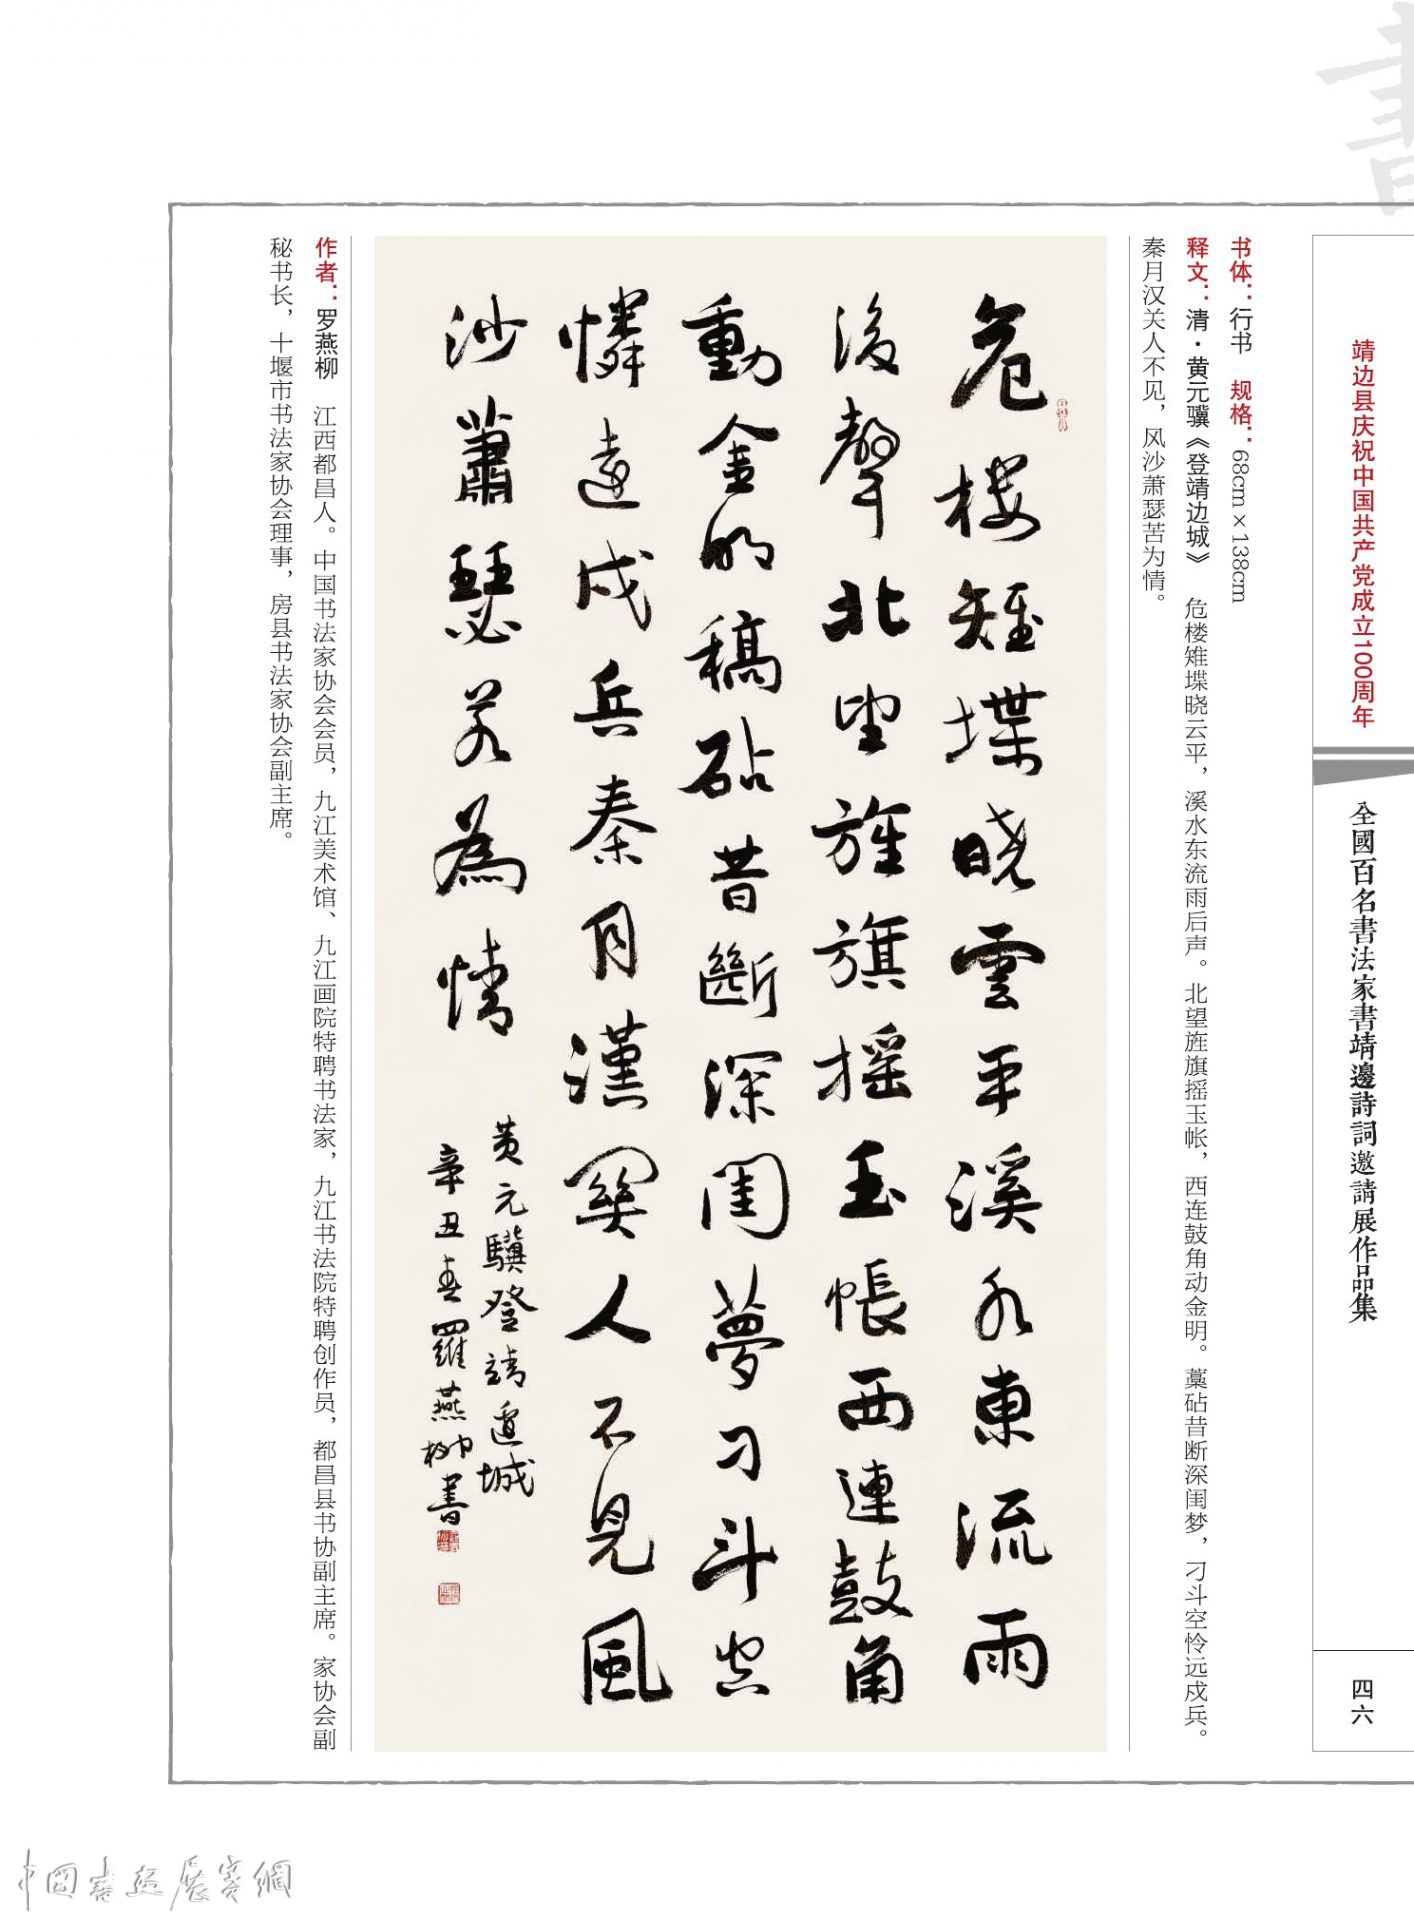 書
靖边县庆祝中国共产党成立100周年
全國百名書法家書靖邊詩詞邀請展作品集
四六
书体：行书 规格：68cm×138cm
释文：清·黄元骥《登靖边城》 危楼雉堞晓云平，溪水东流雨后声。北望旌旗摇玉帐，西连鼓角动金明。藁砧昔断深闺梦，刁斗空怜远戍兵。
秦月汉关人不见，风沙萧瑟苦为情。
危楼雉堞晓雲平溪水東流雨
後聲北望旌旗摇玉帳西連鼓角
動金明稿砧昔斷深闺夢刁斗空
憐遠戍兵秦月漢関人不見風
沙蕭瑟苦為情
黄元驥登靖邊城
辛丑春羅燕柳書
作者：罗燕柳 江西都昌人。中国书法家协会会员，九江美术馆、九江画院特聘书法家，九江书法院特聘创作员，都昌县书协副主席。家协会副
秘书长，十堰市书法家协会理事，房县书法家协会副主席。
中國書画展賽網